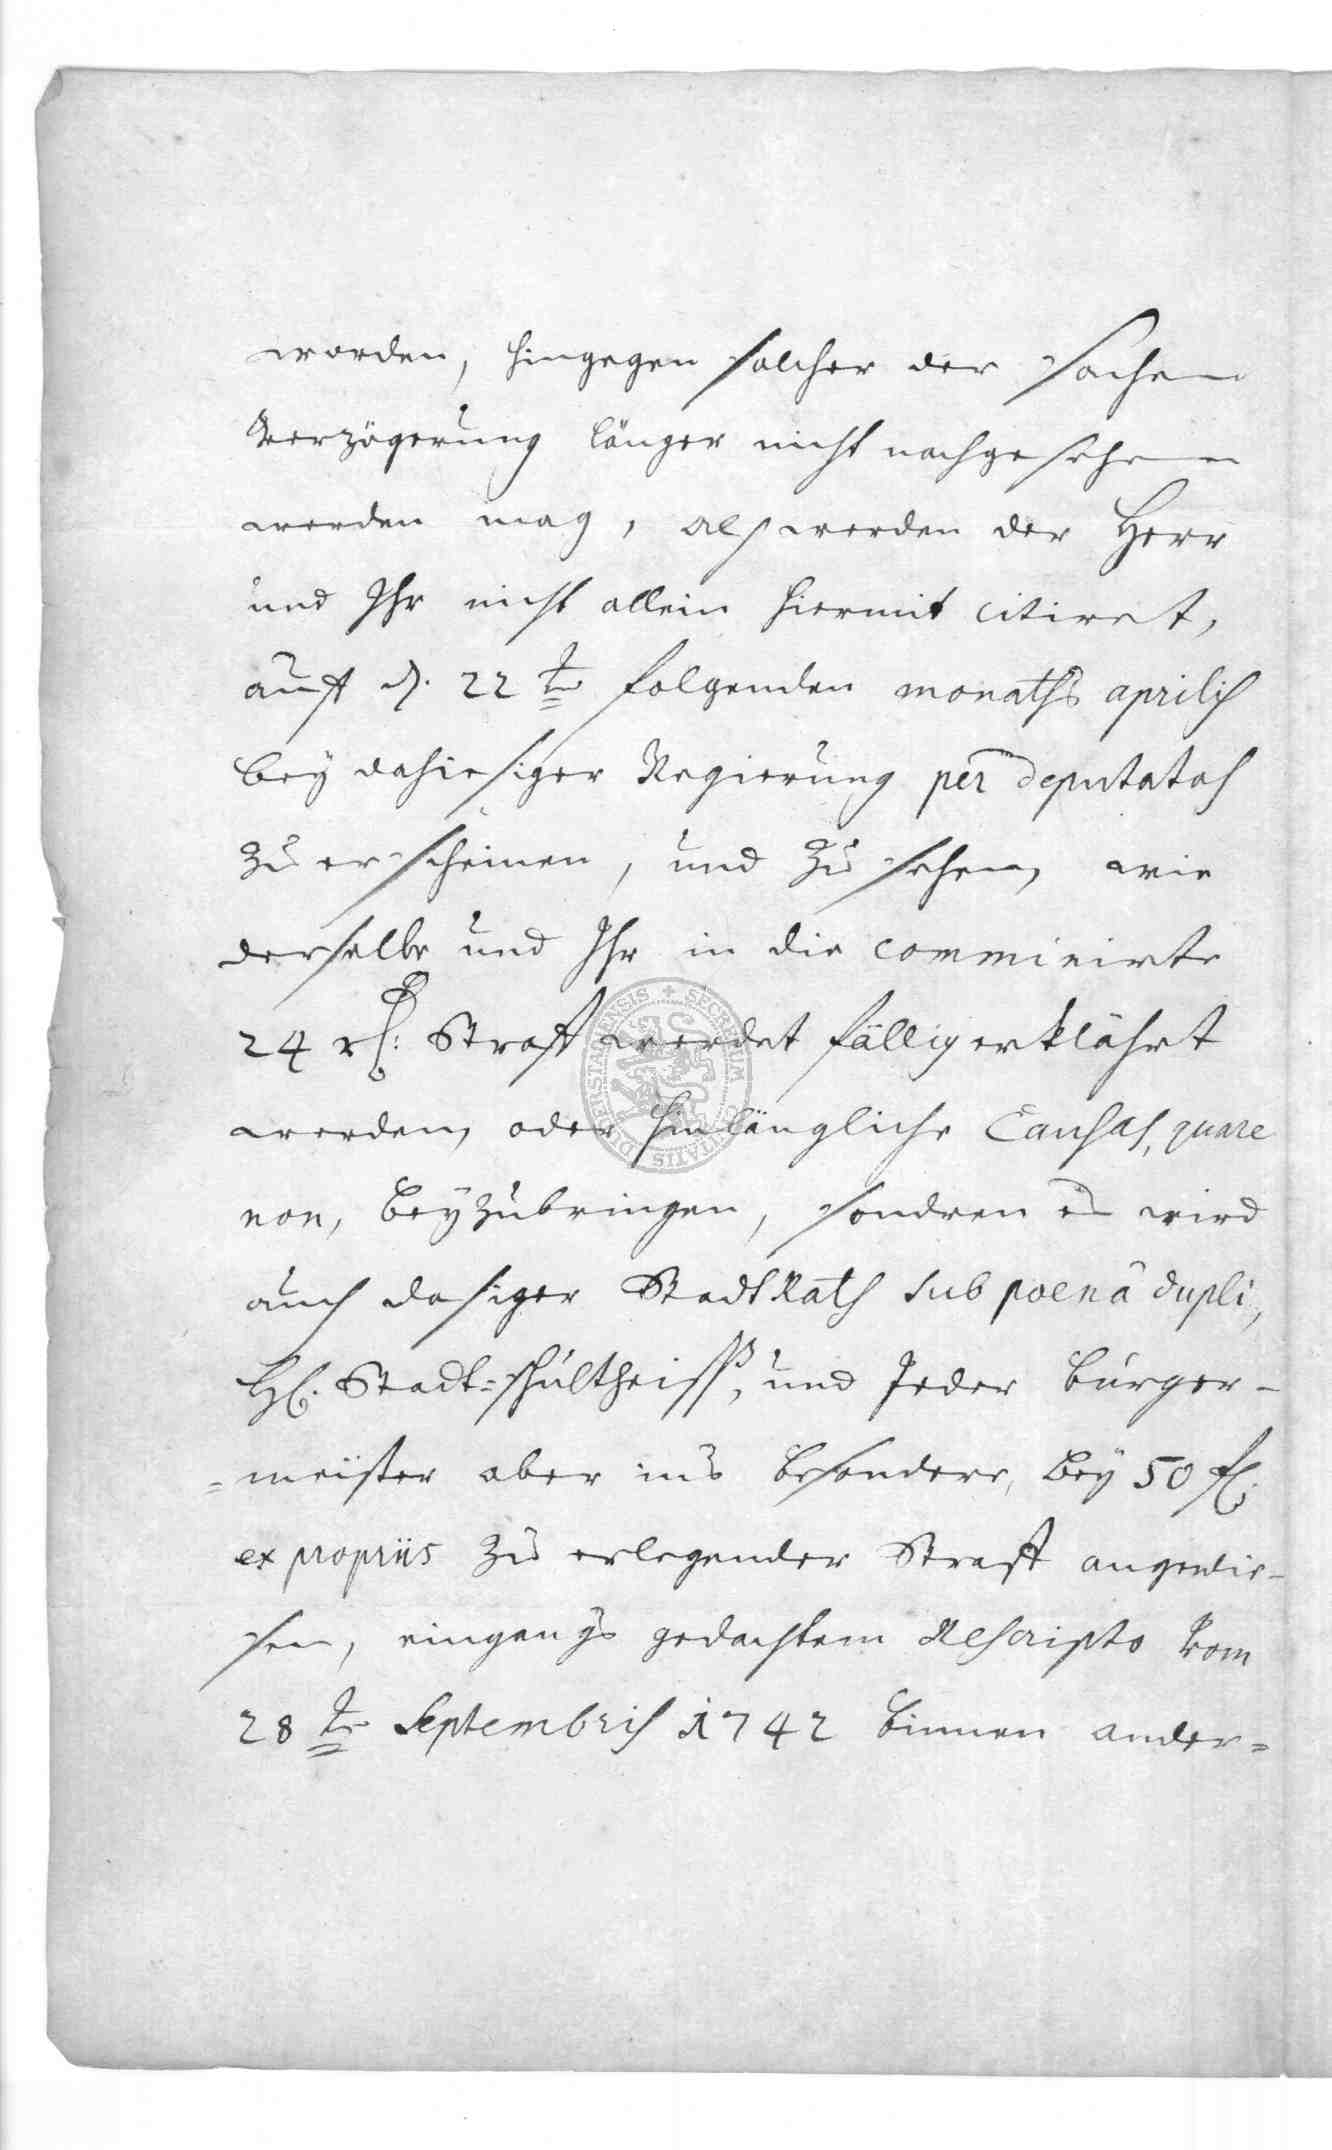 worden, hingegen solcher der sachen
Verzögerung länger nicht nachgesehen
werden mag, als werden der Herr
und Ihr nicht allein hiermit citiret,
auff d. 22ten folgenden monaths aprilis
bey dahiesiger Regierung per deputatos
zu erscheinen, und zu sehen, wie
derselbe und Ihr in die comminirte
24 rl: Straff werdet fällig erklährt
werden, oder hinlängliche Causas, quare
non, beyzubringen, sondren es wird
auch dasiger StadtRath sub poenâ dupli,
H. Stadt=schultheiss, und Jeder bürger-
=meister aber ins besondere, bey 50 fl.
ex propriis zu erlegender Straff angewie-
sen, eingangs gedachtem Rescripto vom
28ten Septembris 1742 binnen ander=
SECRETUM CIVITATIS DUDERSTADENSIS